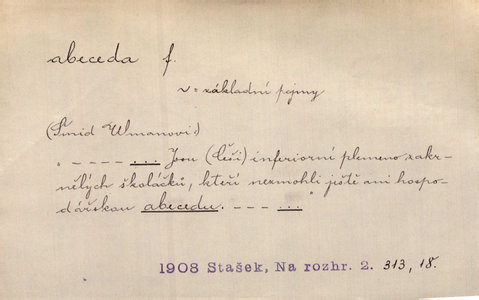 abeceda f.
v = základní pojmy
(Šmid Ulmanovi:)
„ – – – – ... Jsou (Češi) inferiorní plemeno zakr-
nělých školáčků, kteří nezmohli ještě ani hospo-
dářskou abecedu. – – – ... "
1908 Stašek, Na rozhr. 2. 313, 18.